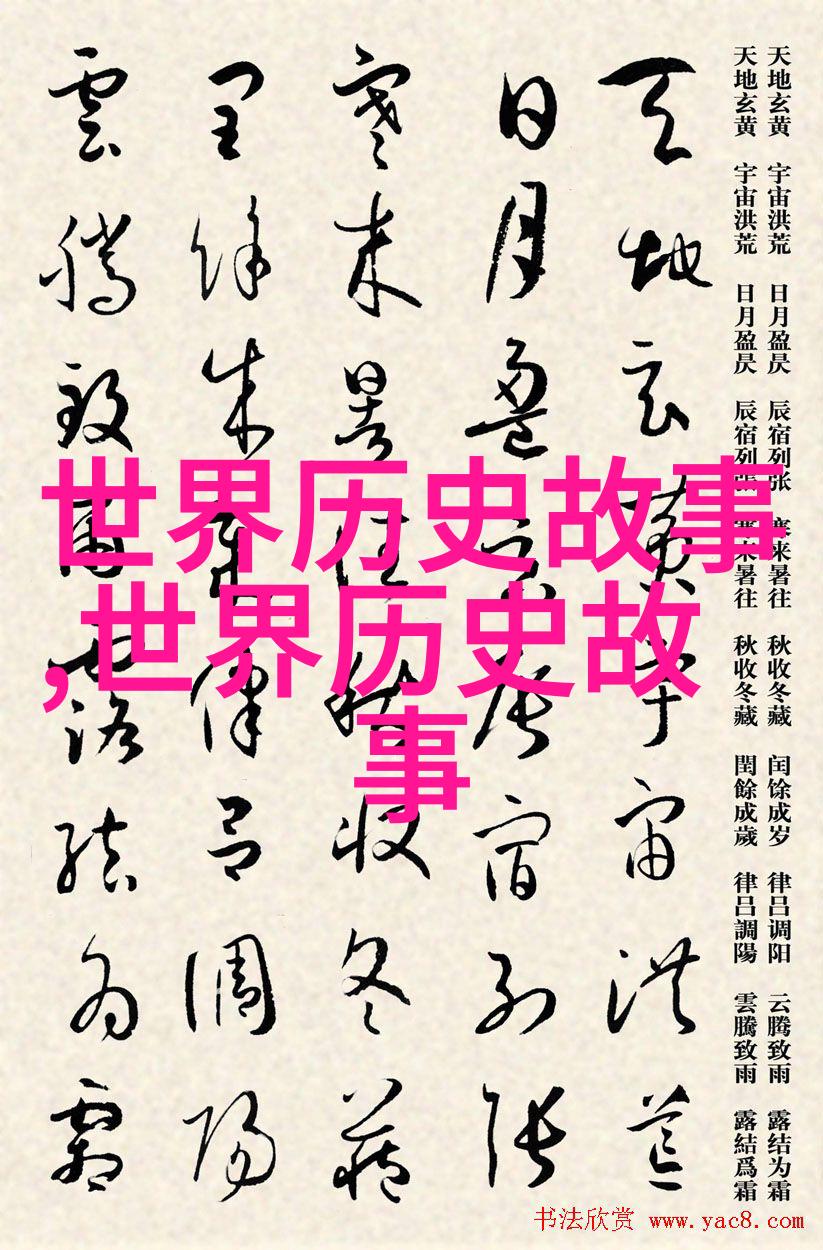 天地玄黄 宇宙洪荒 日月盈昃 辰宿列张 寒来暑往 秋收冬藏 闰馀成岁 律吕调阳 云腾致雨 露结为霜
天地玄黄 宇宙洪荒 日月盈昃 辰宿列張 寒来暑往 秋收冬藏 閏餘成歲 律吕調陽 雲騰致雨 露結爲霜
天地玄黄宇宙洪荒
日月盈昃辰宿列張
寒来暑往秋收冬藏
閏餘成歲律吕調陽
雲騰致雨露結為霜
世界历史故事
,世界历史故
事
书法欣赏 www.yac8.com